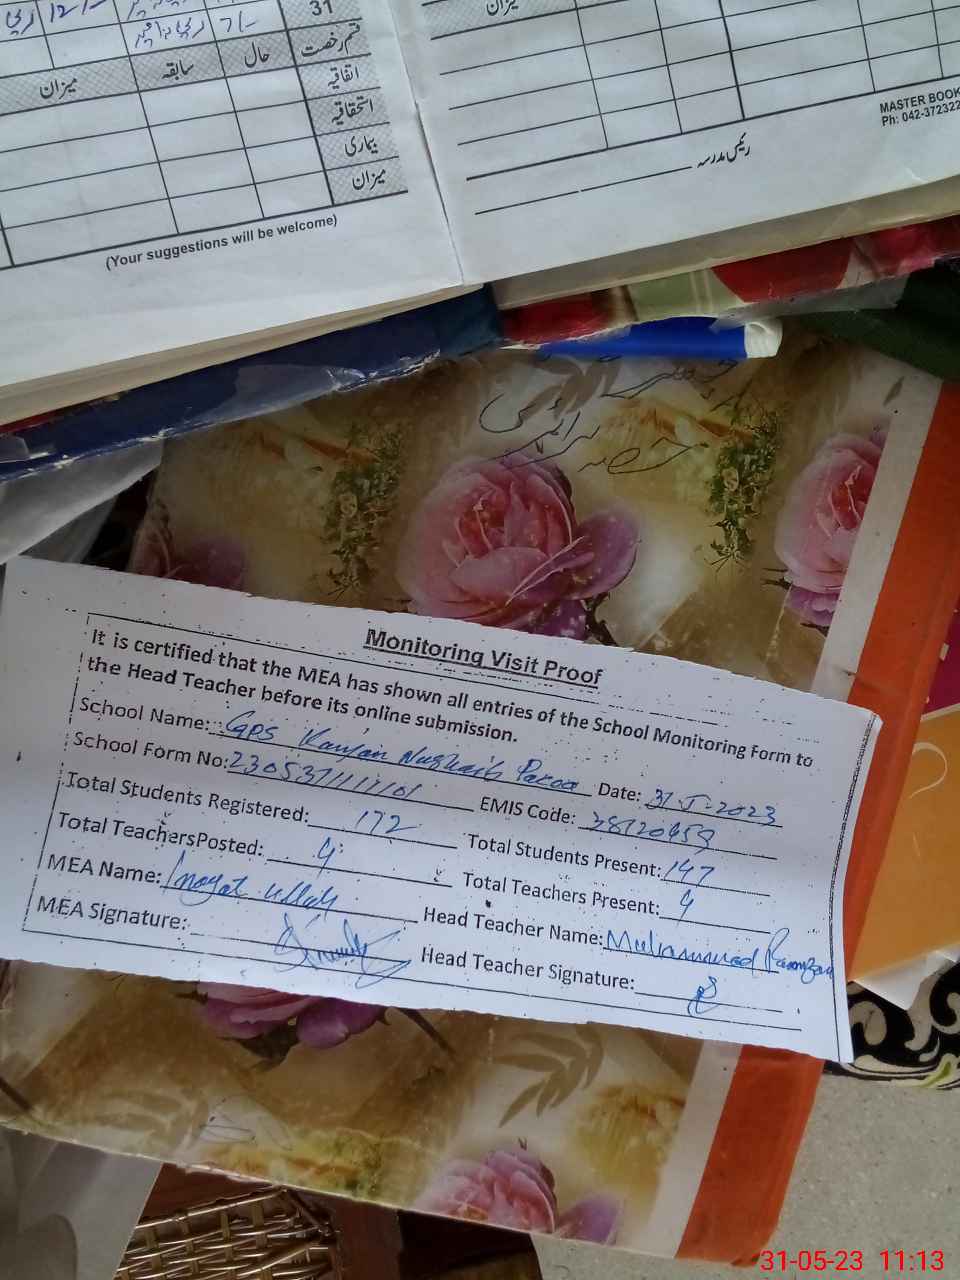 31
قسم رخصت
حال
سابقہ
میزان
اتفاقیہ
استحقاقیہ
بیماری
میزان
(Your suggestions will be welcome)
میزان
رئیس مدرسہ
MASTER BOOK
Ph: 042-372322
Monitoring Visit Proof
It is certified that the MEA has shown all entries of the School Monitoring Form to
the Head Teacher before its online submission.
School Name: GPS Date: 31-5-2023
School Form No: EMIS Code:
Total Students Registered: 172 Total Students Present: 147
Total TeachersPosted: 4 Total Teachers Present: 4
MEA Name: Inayat Ullah Head Teacher Name: Muhammad Ramzan
MEA Signature: Head Teacher Signature:
31-05-23 11:13